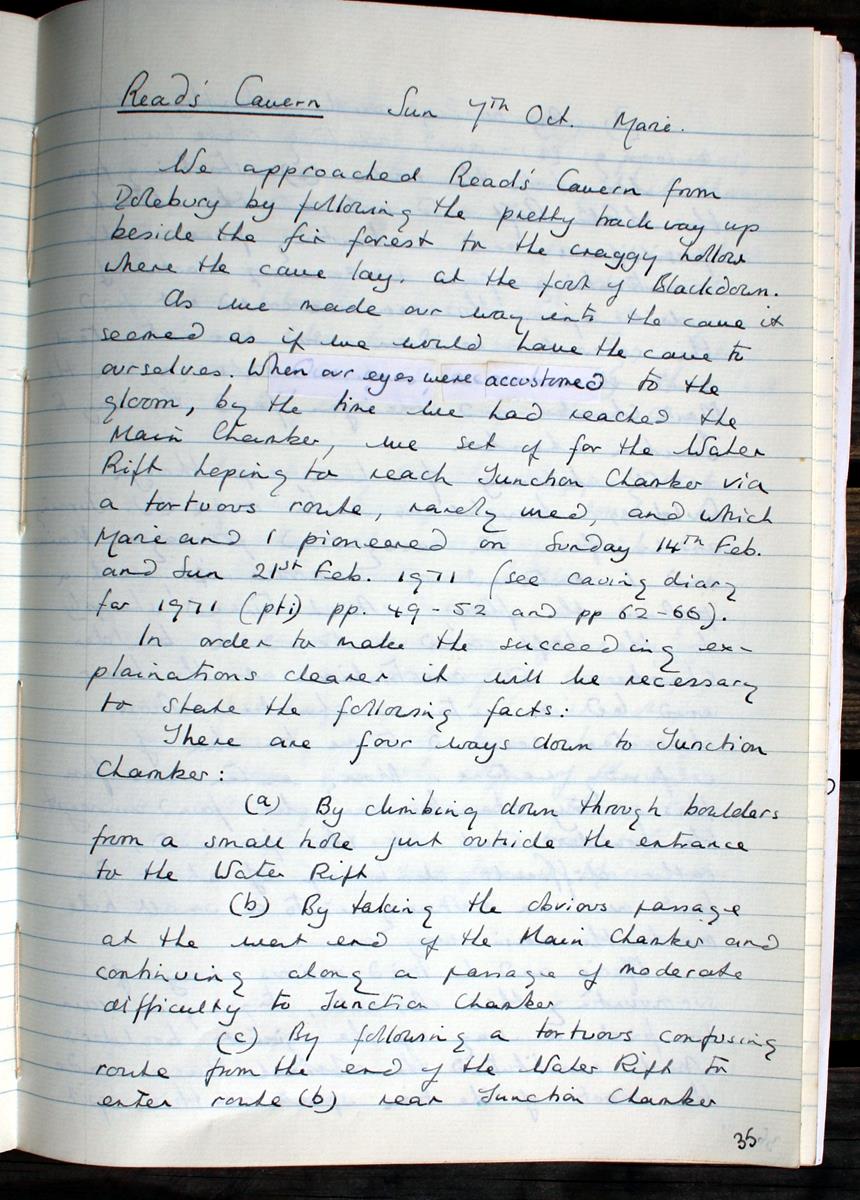 Reads' Cavern Sun 7th Oct. Marie.
We approached Reads' Cavern from
Dolebury by following the pretty trackway up
beside the fir forest to the craggy hollow
where the cave lay, at the foot of Blackdown.
As we made our way into the cave it
seemed as if we would have the cave to
ourselves. When our eyes were accustomed to the
gloom, by the time we had reached the
Main Chamber, we set of for the Water
Rift hoping to reach Junction Chamber via
a tortuous route, rarely used, and which
Marie and I pioneered on Sunday 14th Feb.
and Sun 21st Feb. 1971 (see caving diary
for 1971 (pt i) pp. 49-52 and pp 62-66).
In order to make the succeeding ex-
plainations clearer it will be necessary
to state the following facts:
There are four ways down to Junction
Chamber:
(a) By climbing down through boulders
from a small hole just outside the entrance
to the Water Rift
(b) By taking the obvious passage
at the west end of the Main Chamber and
continuing along a passage of moderate
difficulty to Junction Chamber
(c) By following a tortuous confusing
route from the end of the Water Rift to
enter route (b) near Junction Chamber
35